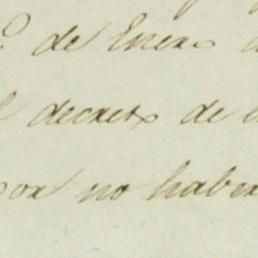 de Enero
decreto de
por no haber